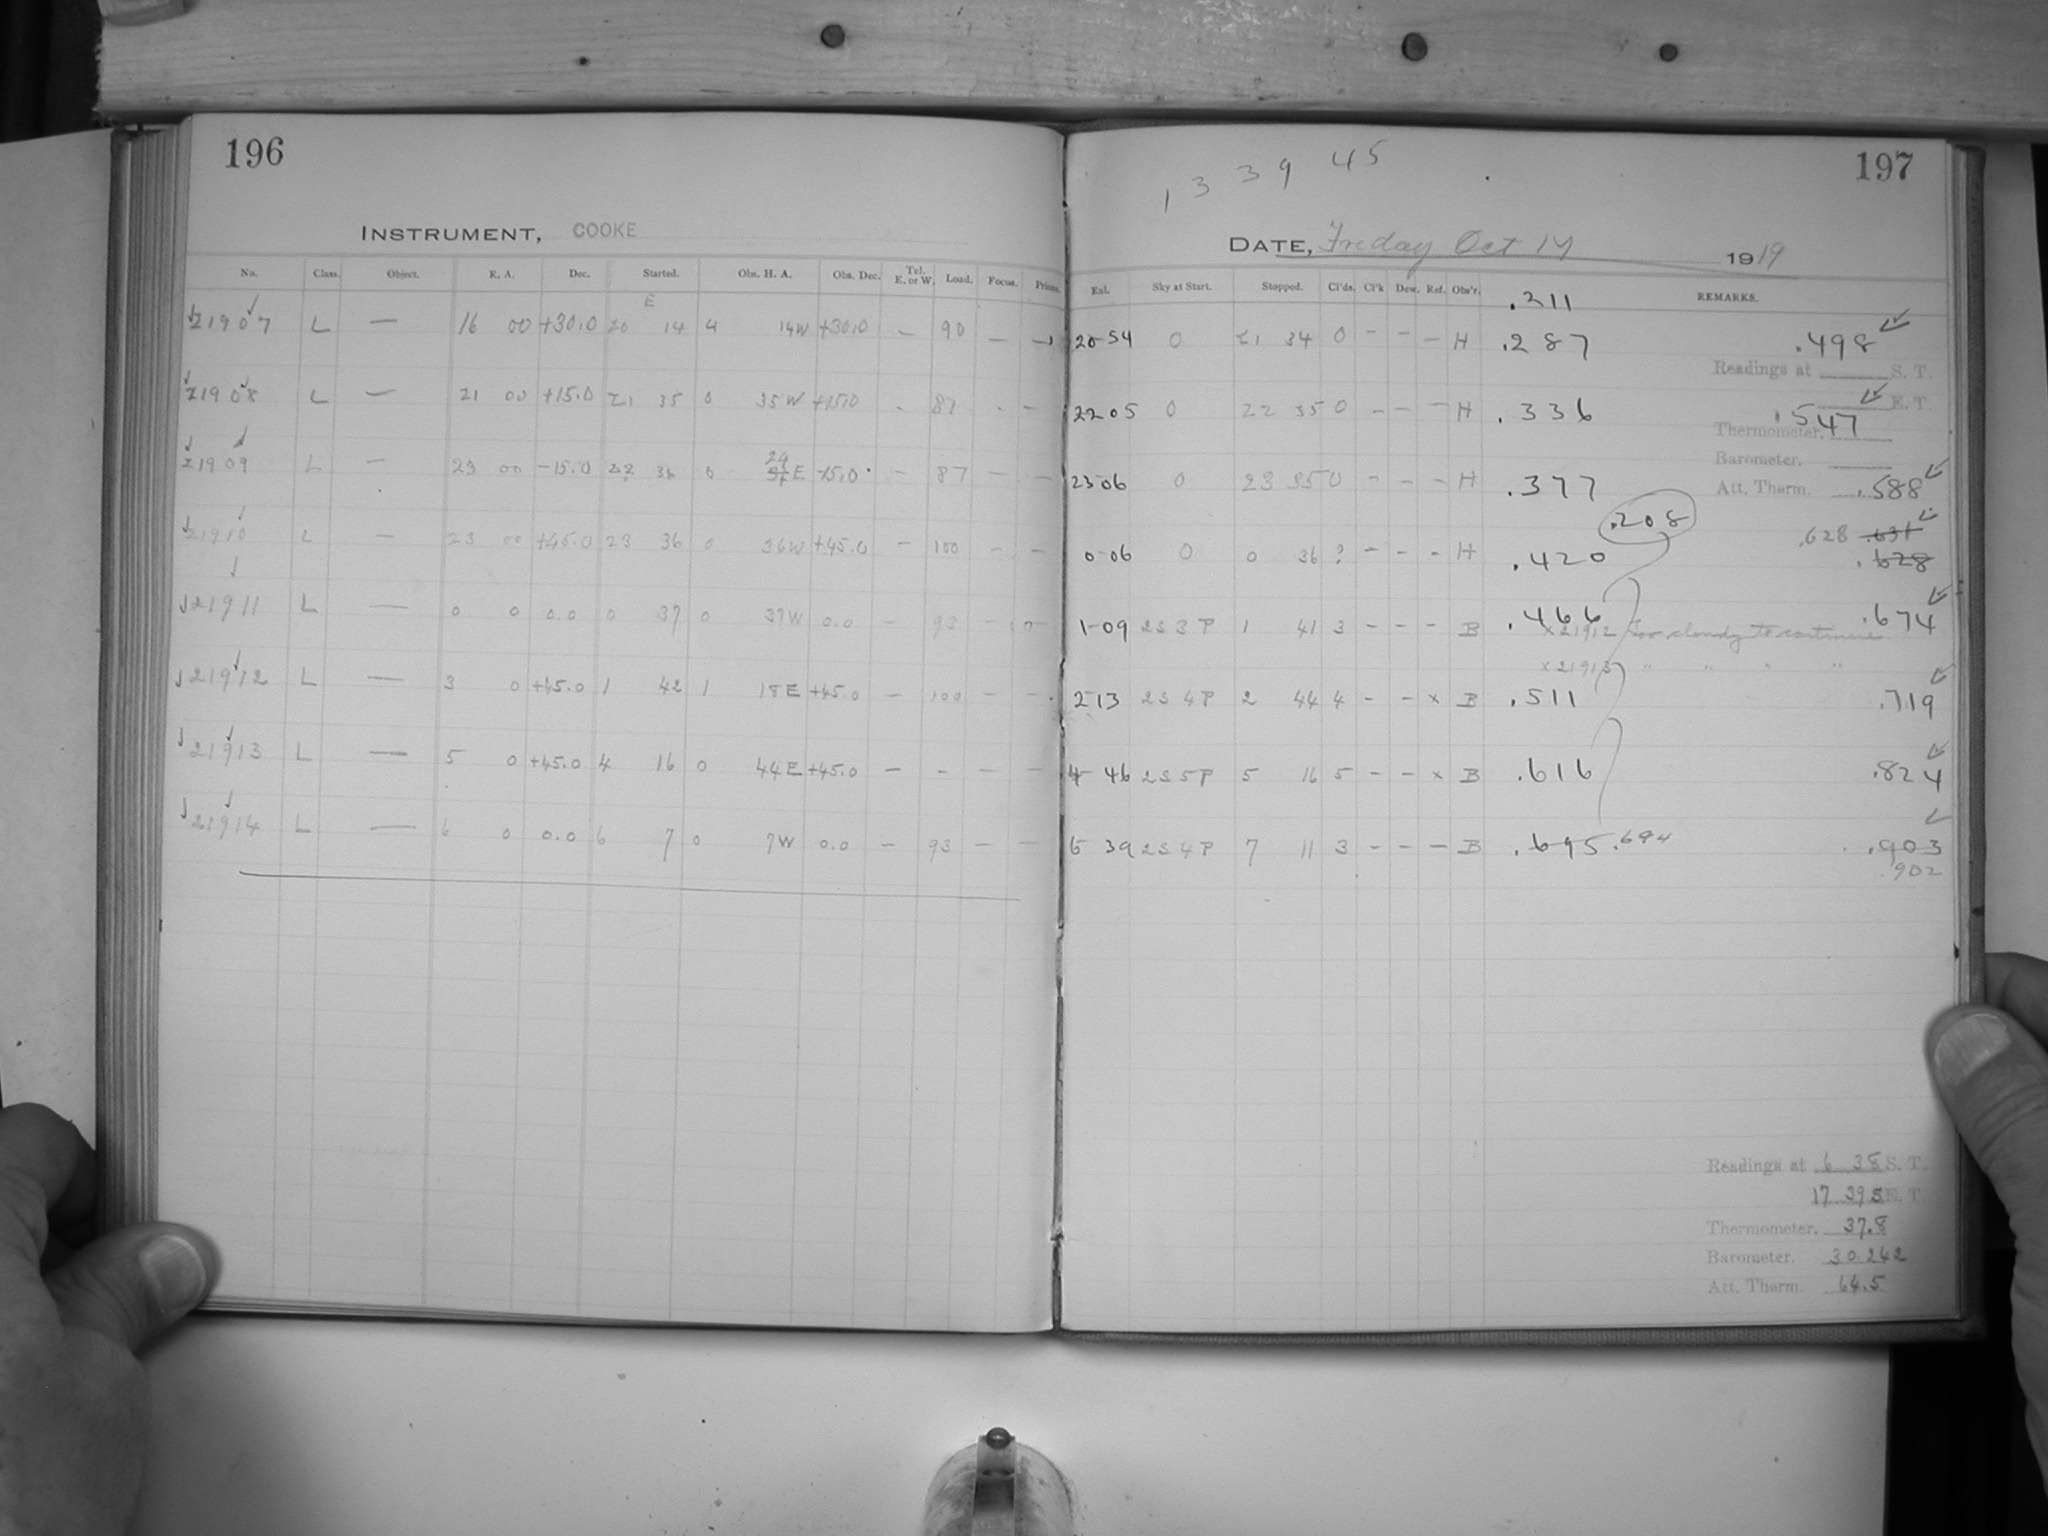 196
INSTRUMENT, COOKE
No. Class. Object. R. A. Dec. Started. Obs. H. A. Obs. Dec. Tel. E. or W. Load. Focus. Prism.
E
21907 L — 16 00 +30.0 20 14 4 14W +30.0 – 90 – –
21908 L — 21 00 +15.0 21 35 0 35W +15.0 - 87 - –
21909 L — 23 00 -15.0 22 36 0 24 E -15.0 – 87 – –
21910 L — 23 00 +45.0 23 36 0 36W +45.0 – 100 – –
21911 L — 0 0 0.0 0 37 0 37W 0.0 – 93 –
21912 L — 3 0 +45.0 1 42 1 18E +45.0 – 100 – -
21913 L — 5 0 +45.0 4 16 0 44E +45.0 – - – –
21914 L — 6 0 0.0 6 7 0 7W 0.0 – 93 – –
1 3 3 9 45
197
DATE, Friday Oct 17 1919
Eal. Sky at Start. Stopped. Cl'ds. Cl'k Dew. Ref. Obs'r. REMARKS.
.211
20-54 0 21 34 0 – – – H .287 .498
Readings at S. T.
22 05 0 22 35 0 – – – H .336 .547
E. T.
Thermometer.
Barometer.
23 06 0 23 35 0 – – – H .377 .588
Att. Therm.
.208
.628 .631
0-06 0 0 36 ? – – – H .420 .628
1-09 2S3P 1 41 3 – – – B .466 .674
x 21912 Too cloudy to continue
x 21913 " " " "
2-13 2S4P 2 44 4 – – x B .511 .719
4-46 2S5P 5 16 5 – – x B .616 .824
6 39 2S4P 7 11 3 – – – B .695 .694 .903
.902
Readings at 6 38 S. T.
17 395 E. T.
Thermometer. 37.8
Barometer. 30.242
Att. Therm. 64.5